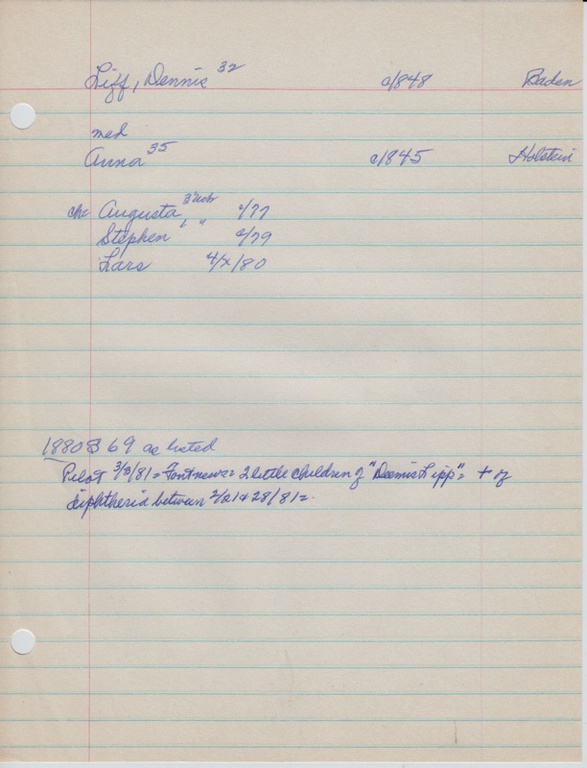 Liff, Dennis 32 c/1848 Baden
med
Anna 35 c/1845 Holstein
ch: Augusta, 3 Neb c/77
Stephen 1 " c/79
Lars 4/x/80
1880 B 69 as listed
Pilot 3/3/81 = Font news = 2 little children of "Dennis Lipp" = + of
diphtheria between 2/21 & 28/81 =